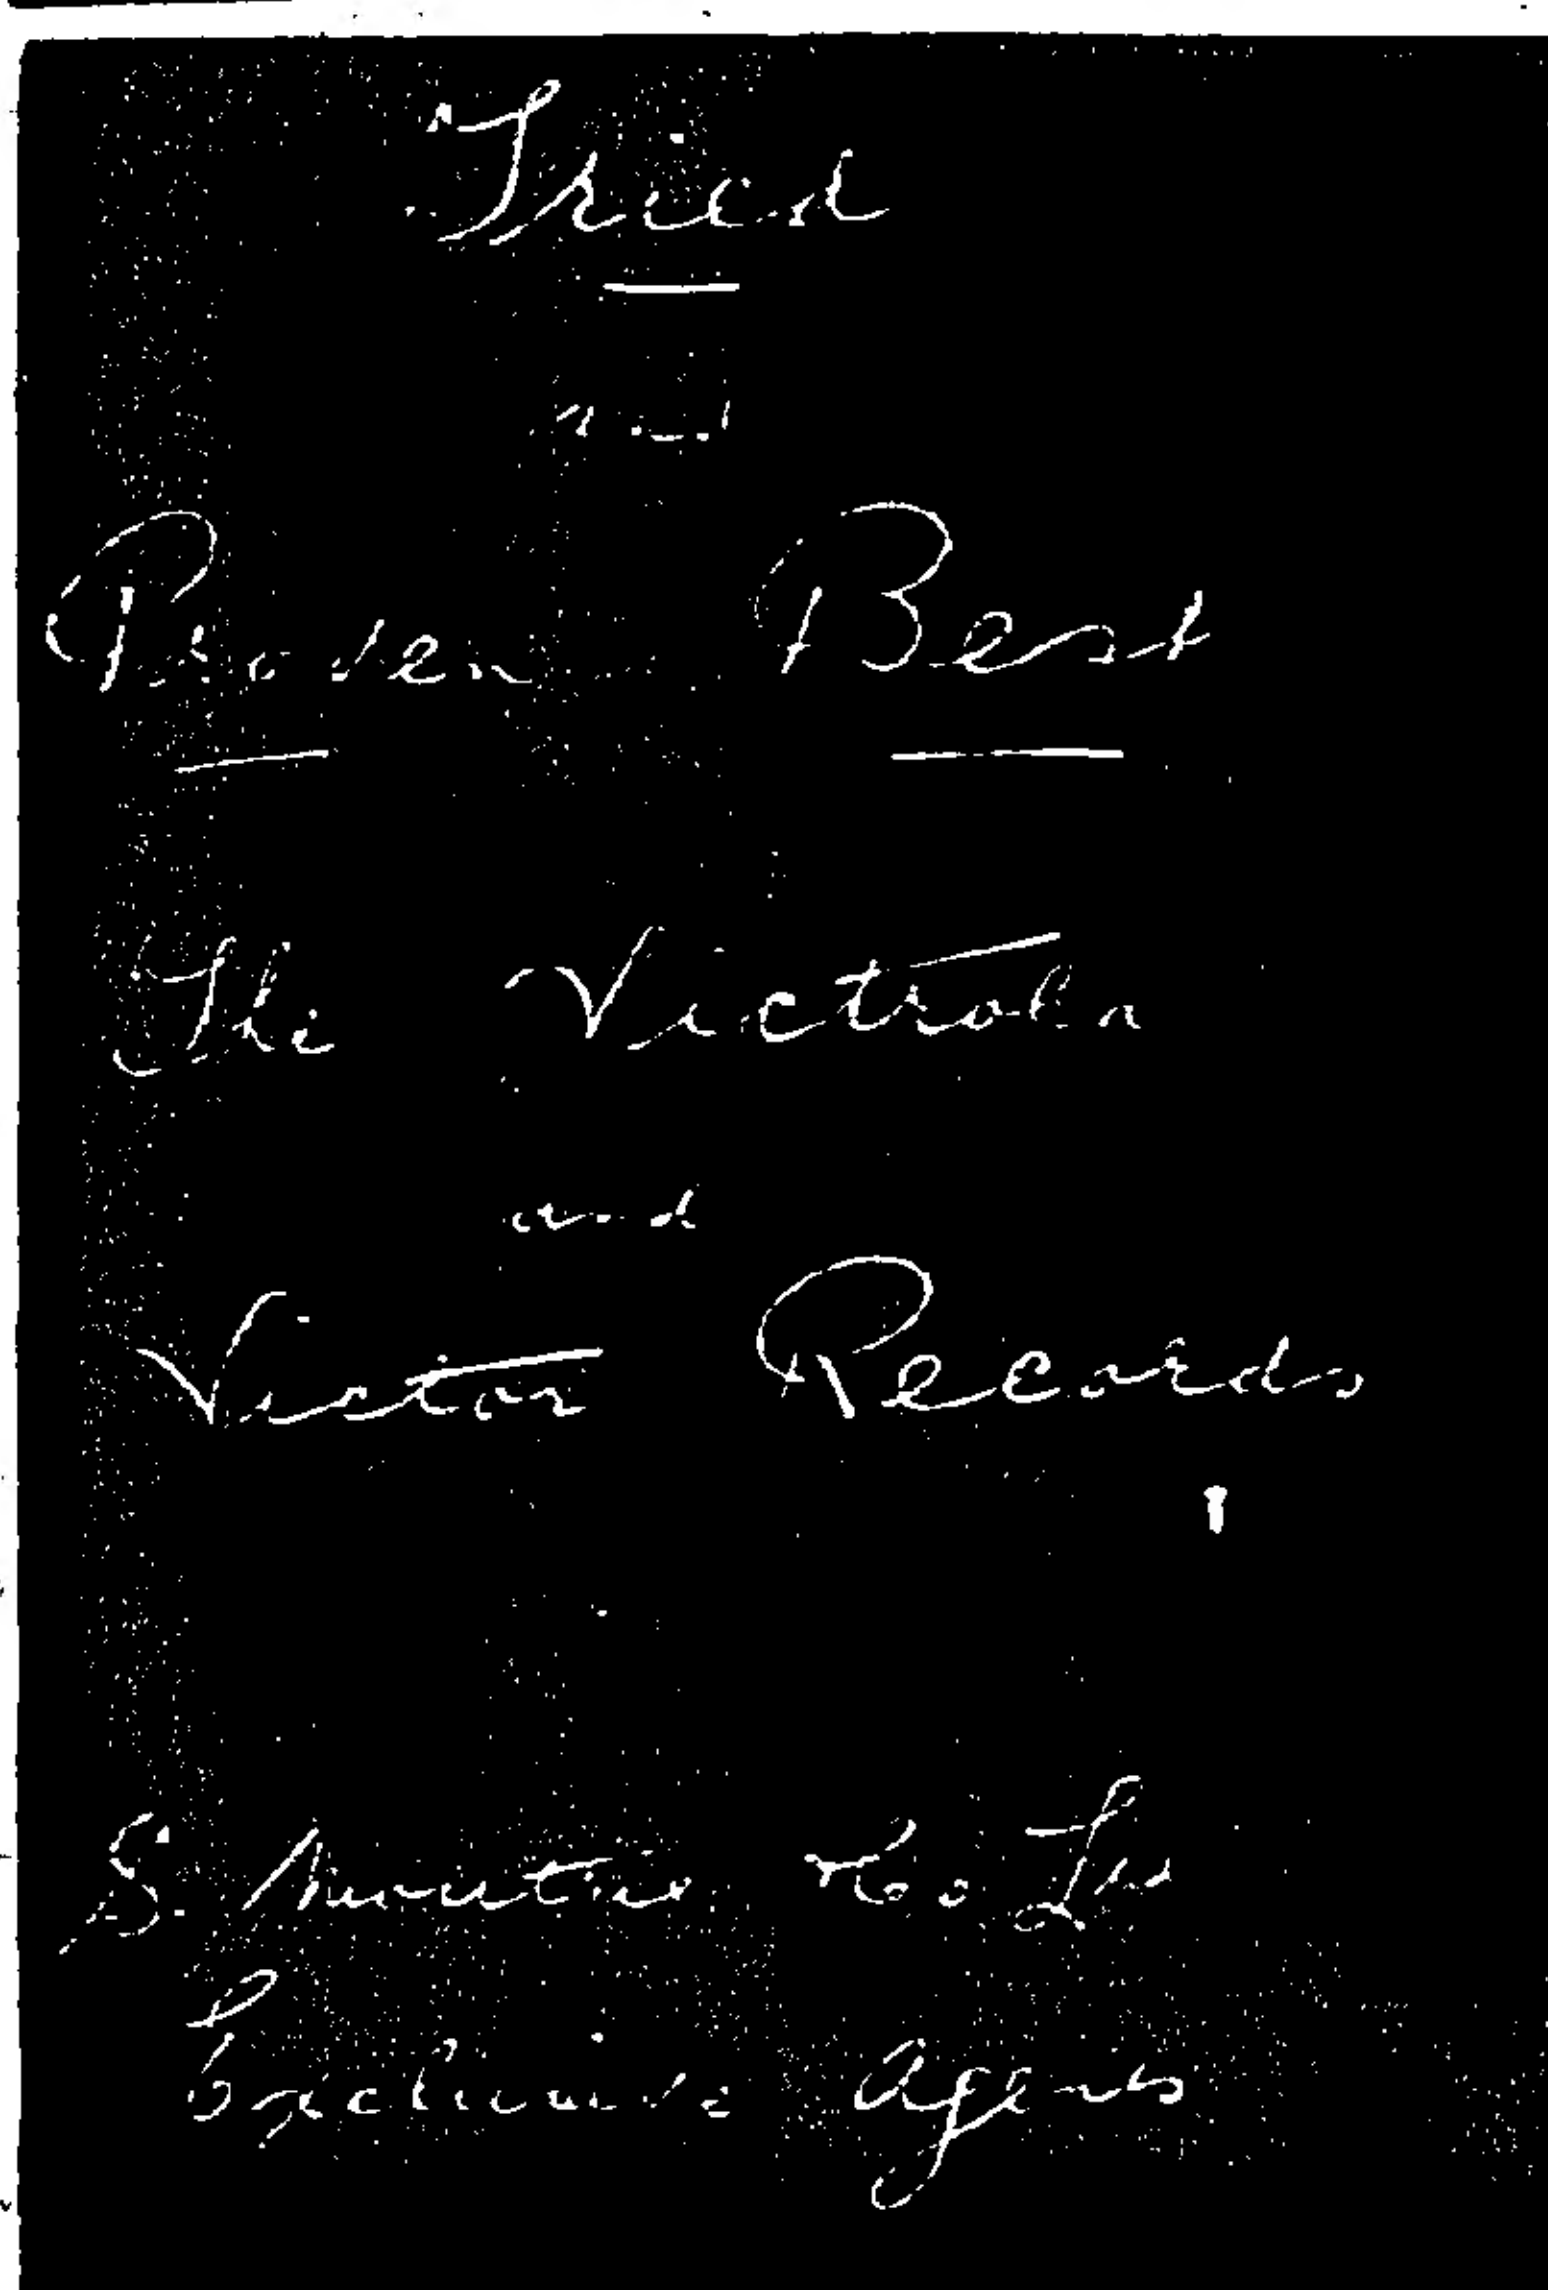 Tried
and
Proven Best
The Victrola
and
Victor Records
S. Moutrie & Co Ltd
Exclusive Agents